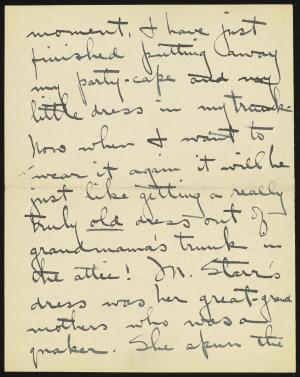 moment. I have just
finished putting away
my party-cape and my
little dress in my trunk.
Now when I want to
wear it again it will be
just like getting a really
truly old dress out of
grandmama's trunk in
the attic! M. Starr's
dress was her great-grand
mothers who was a
quaker. She spun the